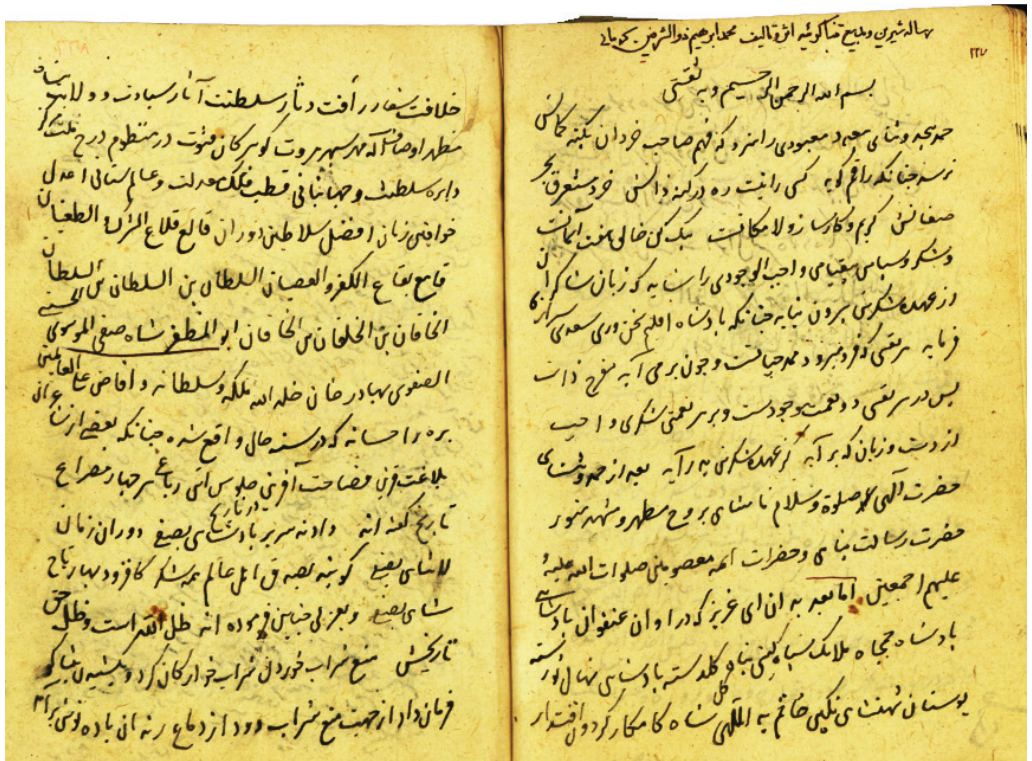 رساله شیرین و بدیع تنباکوئیه اش تالیف محمد ابراهیم ذوالشرفین
۲۲۷
بسم الله الرحمن الرحیم و به ثقتی
حمد بیحد و ثنای بیعد معبودی را سزد که فهم صاحب خردان بکنه
نرسد چنانکه راقم گوید کسی را نیست ره در کنه ذاتش خرد مستغرق بحر
صفاتش کریم و کارساز و لامکانست یک کن خالق هفت آسمانست
و شکر و سپاس بیقیاس واجب الوجودی را شاید که زبان شاکران
از عهده شکرش بیرون نیاید چنانکه پادشاه اقلیم سخن وری سعدی
فرماید هر نفسی که فرو میرود ممد حیاتست و چون بر می آید مفرح ذات
پس در هر نفسی دو نعمت موجودست و بر هر نعمتی شکری واجب
از دست و زبان که برآید کز عهده شکرش بدرآید بعد از حمد و ثنای
حضرت الهی صلوة و سلام نامتناهی بر روح مطهر و مشهد منور
حضرت رسالت پناهی و حضرات ائمه معصومین صلوات الله علیه و
علیهم اجمعین اما بعد بدان ای عزیز که در اوان عنفوان پادشاهی
پادشاه جمجاه ملایک سپاه گیتی پناه گلدسته پادشاهی نهال نورسته
بوستان شهنشاهی نگین خاتم ید اللهی شاه کامکار گردون اقتدار
خلافت شعار رأفت دثار سلطنت آثار سیادت و ولایت پناه
مظهر اوصاف آله مهر سپهر مروت گوهر کان فتوت در منتظم درج
دایره سلطنت و جهانبانی قطب فلک عدالت و عالم ستانی اعدل
خواقین زمان افضل سلاطین دوران قالع قلاع الشرک و الطغیان
قامع بقاع الکفر و العصیان السلطان بن السلطان بن السلطان
الخاقان بن الخاقان بن الخاقان ابو المظفر شاه صفی الموسوی الحسینی
الصفوی بهادر خان خلد الله ملکه و سلطانه و افاض علی العالمین
بره و احسانه که در سنه حال واقع شده چنانکه بعضی از شاعران
بلاغت قرین فصاحت آفرین جلوس اش رباعی هر چهار مصراع
تاریخ گفته اند در تاریخ دادند سریر پادشاهی بصفی دوران زمان
شاهی بصفی گویند بصدق اهل عالم همه شکر کافزود بهار تاج
شاهی بصفی و بعضی چنین فرموده اند ظل الله است و ظل حق
تاریخش منع شراب خوردن شراب خوارگان کرد و
فرمان داد از جهت منع شراب دود از دماغ رندان باده نوش برآمد